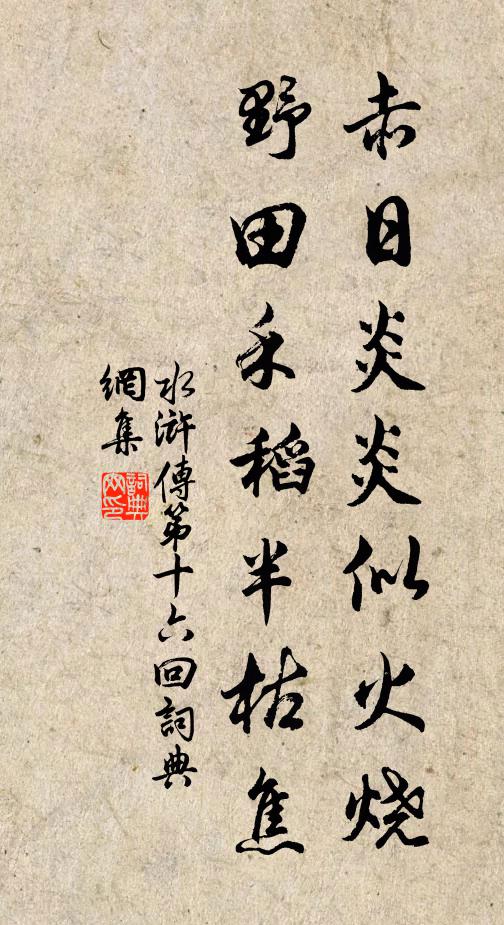 赤日炎炎似火烧
野田禾稻半枯焦
水滸傳第十六回詞典
網集
詞典
网印